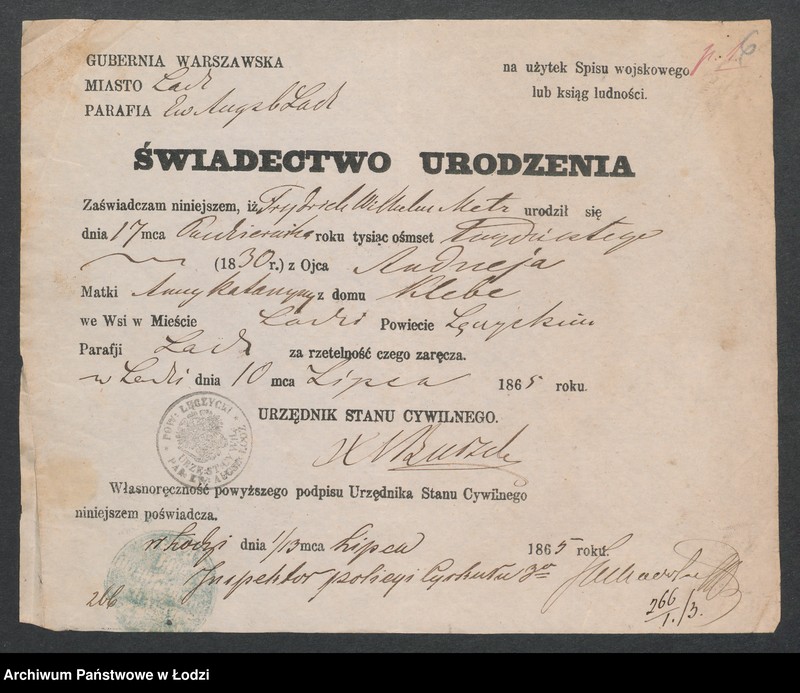 GUBERNIA WARSZAWSKA
MIASTO Łódź
PARAFIA Ew Augsb Łódź
na użytek Spisu wojskowego
lub ksiąg ludności.
ŚWIADECTWO URODZENIA
Zaświadczam niniejszem, iż Frydrich Wilhelm Metz urodził się
dnia 17 mca Października roku tysiąc ośmset trzydziestego
(1830 r.) z Ojca Andrzeja
Matki Anny Katarzyny z domu Klebe
we Wsi w Mieście Łodzi Powiecie Łęczyckim
Parafji Łódź za rzetelność czego zaręcza.
w Łodzi dnia 10 mca Lipca 1865 roku.
URZĘDNIK STANU CYWILNEGO.
POW: ŁĘCZYCKI
Własnoręczność powyższego podpisu Urzędnika Stanu Cywilnego
niniejszem poświadcza.
w Łodzi dnia 1/13 mca Lipca 1865 roku.
Inspektor policyi Cyrkułu 3go
266
266/1./3.
Archiwum Państwowe w Łodzi